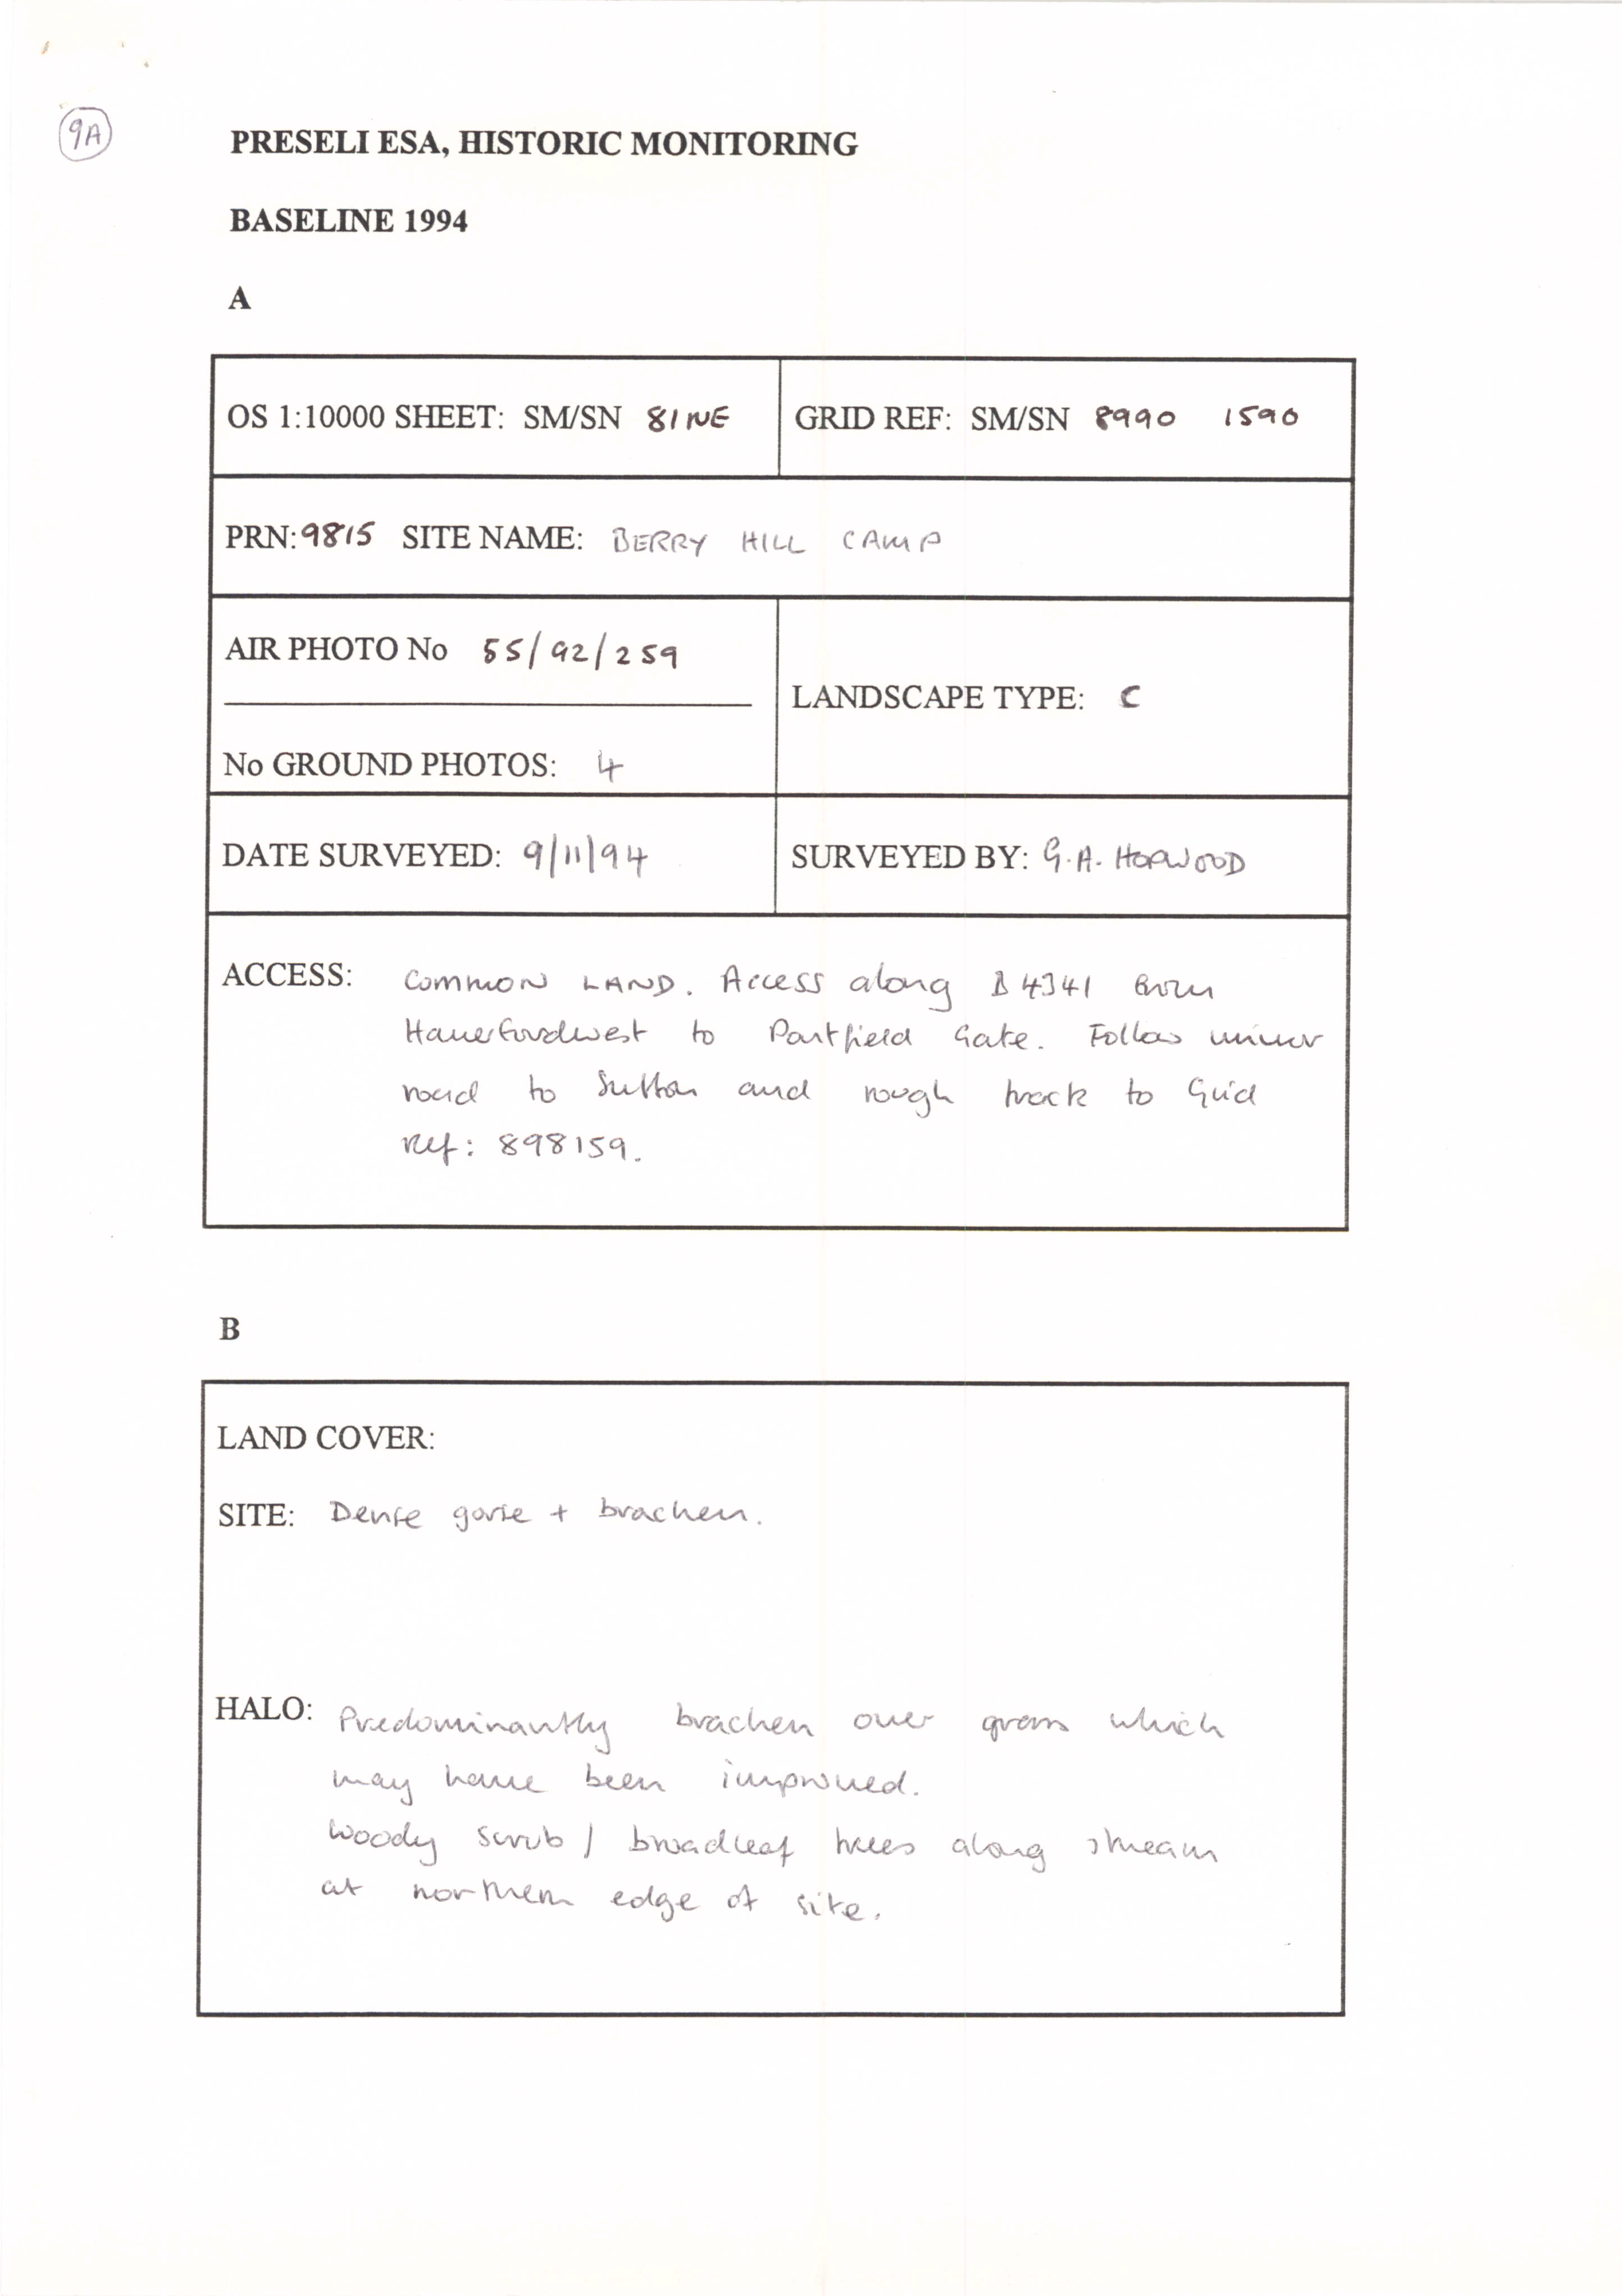 9A
PRESELI ESA, HISTORIC MONITORING
BASELINE 1994
A
OS 1:10000 SHEET: SM/SN 81NE
GRID REF: SM/SN 8990 1590
PRN: 9815 SITE NAME: BERRY HILL CAMP
AIR PHOTO No 55/92/259
LANDSCAPE TYPE: C
No GROUND PHOTOS: 4
DATE SURVEYED: 9/11/94
SURVEYED BY: G.A. HORWOOD
ACCESS: COMMON LAND. Access along B4341 from
Haverfordwest to Portfield Gate. Follow minor
road to Sutton and rough track to Grid
Ref: 898159.
B
LAND COVER:
SITE: Dense gorse + bracken.
HALO: Predominantly bracken over grass which
may have been improved.
Woody scrub / broadleaf trees along stream
at northern edge of site.